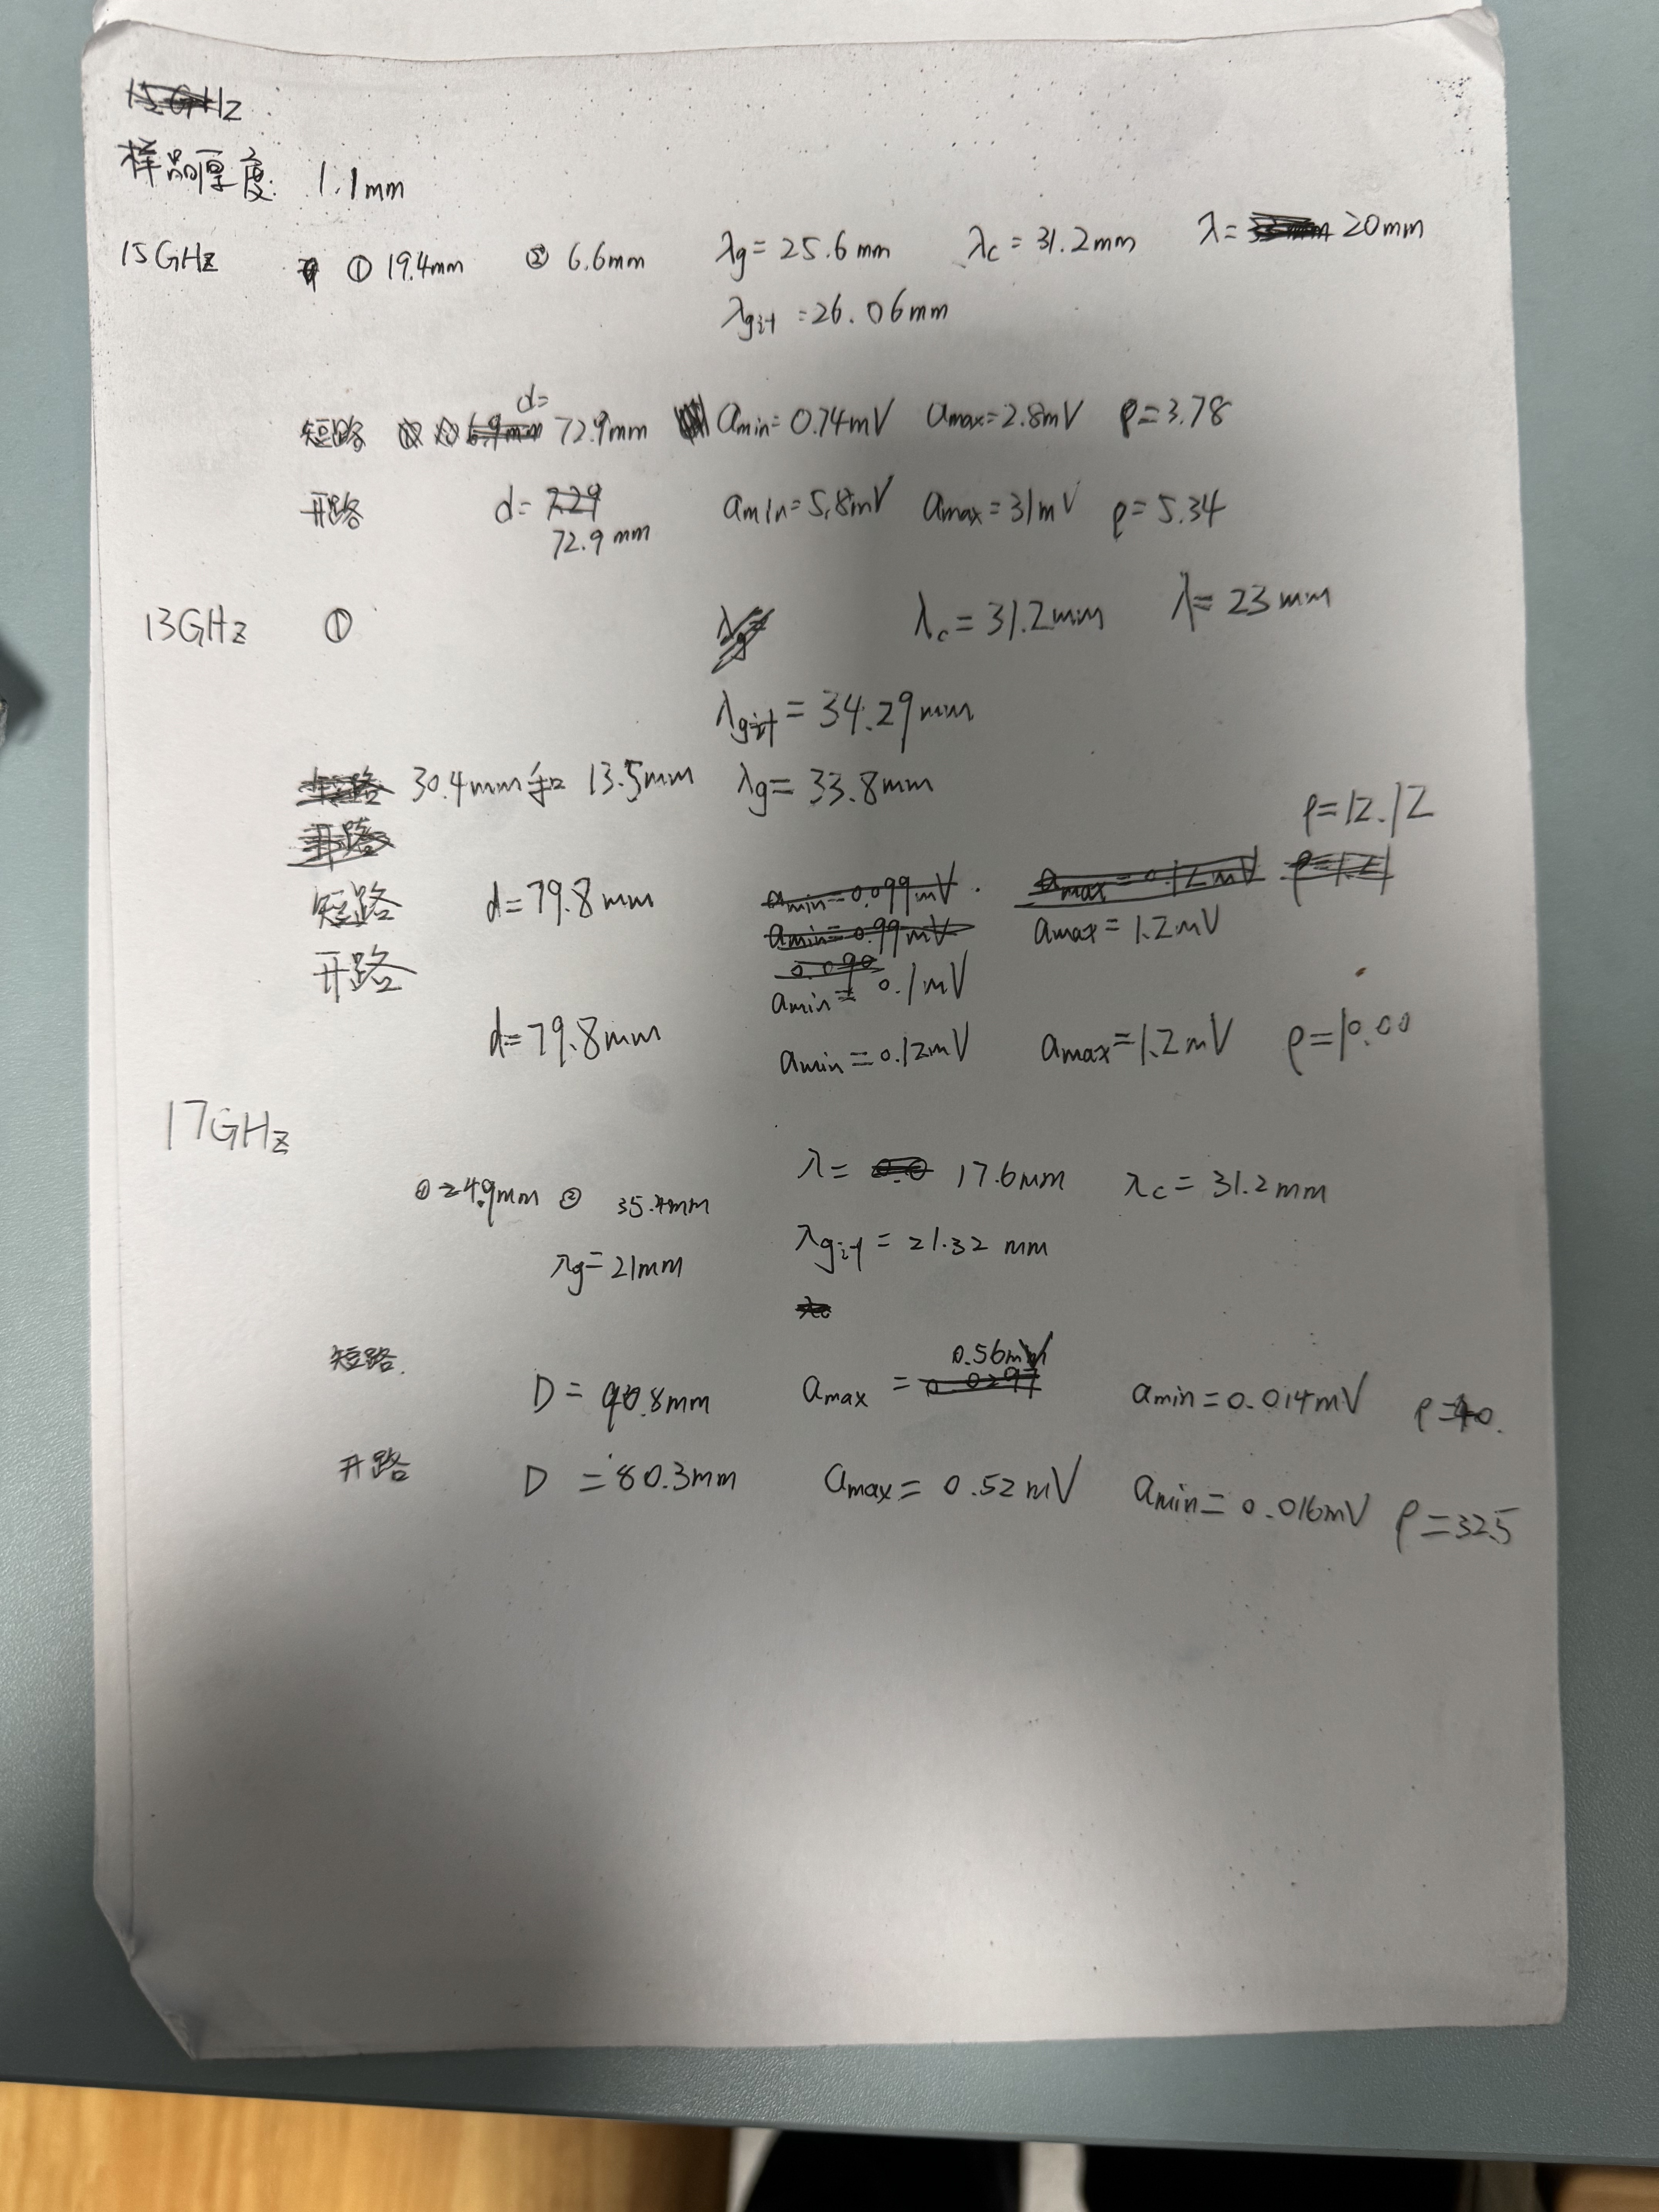 样品厚度: 1.1mm
15GHz ① 19.4mm ② 6.6mm λg=25.6mm λc=31.2mm λ=20mm
λg计=26.06mm
短路 d=72.9mm amin=0.74mV amax=2.8mV ρ=3.78
开路 d=72.9mm amin=5.8mV amax=31mV ρ=5.34
13GHz ① λc=31.2mm λ=23mm
λg计=34.29mm
30.4mm和 13.5mm λg=33.8mm
ρ=12.12
短路 d=79.8mm amax=1.2mV
开路 amin=0.1mV
d=79.8mm amin=0.12mV amax=1.2mV ρ=10.00
17GHz
λ=17.6mm λc=31.2mm
①24.9mm ② 35.4mm
λg=21mm λg计=21.32mm
短路. D=90.8mm amax=0.56mV amin=0.014mV ρ=40.
开路 D=80.3mm amax=0.52mV amin=0.016mV ρ=32.5